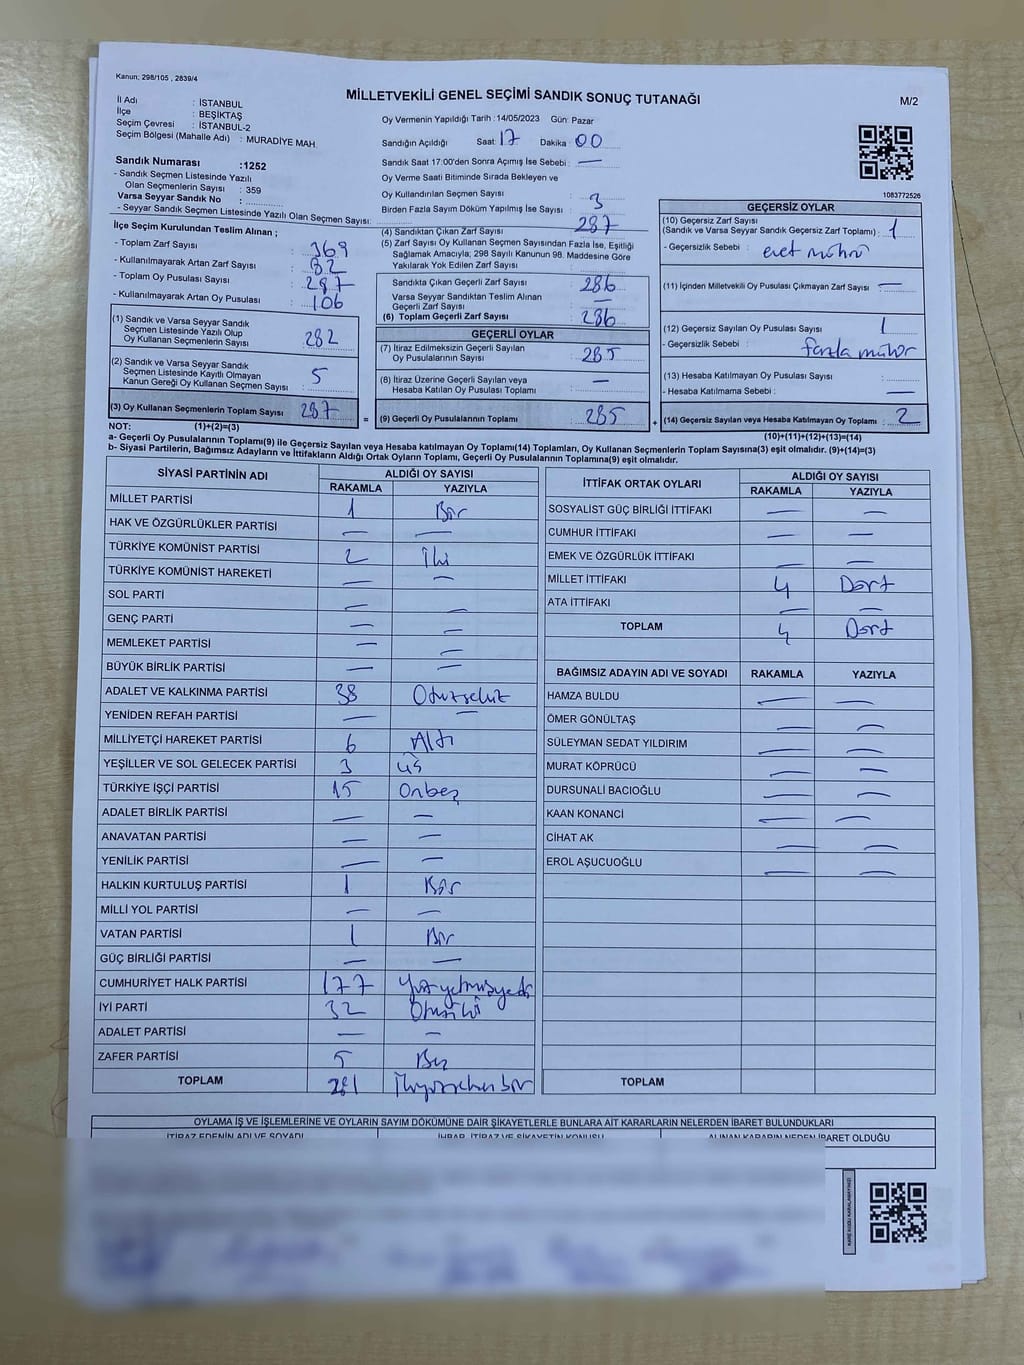 Kanun: 298/105 , 2839/4
MİLLETVEKİLİ GENEL SEÇİMİ SANDIK SONUÇ TUTANAĞI
M/2
İl Adı : İSTANBUL
İlçe : BEŞİKTAŞ
Seçim Çevresi : İSTANBUL-2
Seçim Bölgesi (Mahalle Adı) : MURADİYE MAH.
Sandık Numarası :1252
- Sandık Seçmen Listesinde Yazılı
Olan Seçmenlerin Sayısı : 359
Varsa Seyyar Sandık No :
- Seyyar Sandık Seçmen Listesinde Yazılı Olan Seçmen Sayısı:
Oy Vermenin Yapıldığı Tarih :14/05/2023 Gün: Pazar
Sandığın Açıldığı Saat: 17 Dakika: 00
Sandık Saat 17:00'den Sonra Açımış İse Sebebi : —
Oy Verme Saati Bitiminde Sırada Bekleyen ve
Oy Kullandırılan Seçmen Sayısı : 3
Birden Fazla Sayım Döküm Yapılmış İse Sayısı :
1083772526
İlçe Seçim Kurulundan Teslim Alınan ;
- Toplam Zarf Sayısı : 369
- Kullanılmayarak Artan Zarf Sayısı : 82
- Toplam Oy Pusulası Sayısı :
- Kullanılmayarak Artan Oy Pusulası : 106
(1) Sandık ve Varsa Seyyar Sandık
Seçmen Listesinde Yazılı Olup
Oy Kullanan Seçmenlerin Sayısı : 282
(2) Sandık ve Varsa Seyyar Sandık
Seçmen Listesinde Kayıtlı Olmayan
Kanun Gereği Oy Kullanan Seçmen Sayısı : 5
(3) Oy Kullanan Seçmenlerin Toplam Sayısı : 287 =
(4) Sandıktan Çıkan Zarf Sayısı : 287
(5) Zarf Sayısı Oy Kullanan Seçmen Sayısından Fazla İse, Eşitliği
Sağlamak Amacıyla; 298 Sayılı Kanunun 98. Maddesine Göre
Yakılarak Yok Edilen Zarf Sayısı :
Sandıkta Çıkan Geçerli Zarf Sayısı : 286
Varsa Seyyar Sandıktan Teslim Alınan
Geçerli Zarf Sayısı : —
(6) Toplam Geçerli Zarf Sayısı : 286
GEÇERLİ OYLAR
(7) İtiraz Edilmeksizin Geçerli Sayılan
Oy Pusulalarının Sayısı : 285
(8) İtiraz Üzerine Geçerli Sayılan veya
Hesaba Katılan Oy Pusulası Toplamı : —
(9) Geçerli Oy Pusulalarının Toplamı : 285 +
GEÇERSİZ OYLAR
(10) Geçersiz Zarf Sayısı
(Sandık ve Varsa Seyyar Sandık Geçersiz Zarf Toplamı) : 1
- Geçersizlik Sebebi : evet mührü
(11) İçinden Milletvekili Oy Pusulası Çıkmayan Zarf Sayısı : —
(12) Geçersiz Sayılan Oy Pusulası Sayısı : 1
- Geçersizlik Sebebi : fazla mühür
(13) Hesaba Katılmayan Oy Pusulası Sayısı :
- Hesaba Katılmama Sebebi : —
(14) Geçersiz Sayılan veya Hesaba Katılmayan Oy Toplamı : 2
NOT: (1)+(2)=(3)
(10)+(11)+(12)+(13)=(14)
a- Geçerli Oy Pusulalarının Toplamı(9) ile Geçersiz Sayılan veya Hesaba katılmayan Oy Toplamı(14) Toplamları, Oy Kullanan Seçmenlerin Toplam Sayısına(3) eşit olmalıdır. (9)+(14)=(3)
b- Siyasi Partilerin, Bağımsız Adayların ve İttifakların Aldığı Ortak Oyların Toplamı, Geçerli Oy Pusulalarının Toplamına(9) eşit olmalıdır.
SİYASİ PARTİNİN ADI ALDIĞI OY SAYISI
RAKAMLA YAZIYLA
MİLLET PARTİSİ 1 Bir
HAK VE ÖZGÜRLÜKLER PARTİSİ — —
TÜRKİYE KOMÜNİST PARTİSİ 2 İki
TÜRKİYE KOMÜNİST HAREKETİ — —
SOL PARTİ — —
GENÇ PARTİ — —
MEMLEKET PARTİSİ — —
BÜYÜK BİRLİK PARTİSİ — —
ADALET VE KALKINMA PARTİSİ 38 Otuzsekiz
YENİDEN REFAH PARTİSİ — —
MİLLİYETÇİ HAREKET PARTİSİ 6 Altı
YEŞİLLER VE SOL GELECEK PARTİSİ 3 üç
TÜRKİYE İŞÇİ PARTİSİ 15 Onbeş
ADALET BİRLİK PARTİSİ — —
ANAVATAN PARTİSİ — —
YENİLİK PARTİSİ — —
HALKIN KURTULUŞ PARTİSİ 1 Bir
MİLLİ YOL PARTİSİ — —
VATAN PARTİSİ 1 Bir
GÜÇ BİRLİĞİ PARTİSİ — —
CUMHURİYET HALK PARTİSİ 177 Yüzyetmişyedi
İYİ PARTİ 32 Otuziki
ADALET PARTİSİ — —
ZAFER PARTİSİ 5 Beş
TOPLAM 281 İkiyüzseksenbir
İTTİFAK ORTAK OYLARI ALDIĞI OY SAYISI
RAKAMLA YAZIYLA
SOSYALİST GÜÇ BİRLİĞİ İTTİFAKI — —
CUMHUR İTTİFAKI — —
EMEK VE ÖZGÜRLÜK İTTİFAKI — —
MİLLET İTTİFAKI 4 Dört
ATA İTTİFAKI — —
TOPLAM 4 Dört
BAĞIMSIZ ADAYIN ADI VE SOYADI RAKAMLA YAZIYLA
HAMZA BULDU — —
ÖMER GÖNÜLTAŞ — —
SÜLEYMAN SEDAT YILDIRIM — —
MURAT KÖPRÜCÜ — —
DURSUNALİ BACIOĞLU — —
KAAN KONANCİ — —
CİHAT AK — —
EROL AŞUCUOĞLU — —
TOPLAM
OYLAMA İŞ VE İŞLEMLERİNE VE OYLARIN SAYIM DÖKÜMÜNE DAİR ŞİKAYETLERLE BUNLARA AİT KARARLARIN NELERDEN İBARET BULUNDUKLARI
İTİRAZ EDENİN ADI VE SOYADI İHBAR, İTİRAZ VE ŞİKAYETİN KONUSU ALINAN KARARIN NEDEN İBARET OLDUĞU
KARE KODU KARALAMAYINIZ!